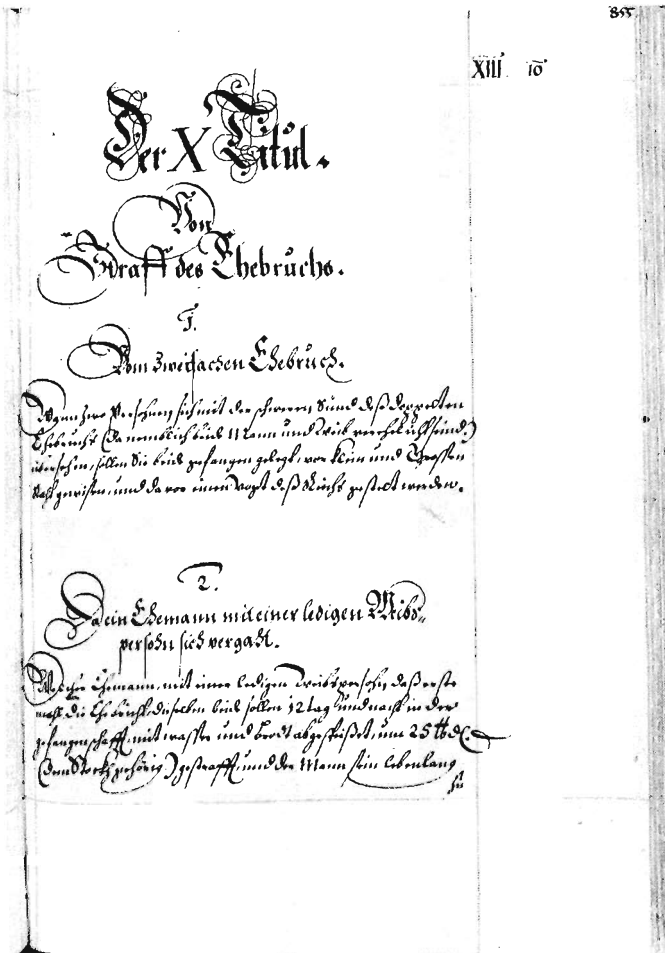 855
XIII 10
Der X Titul.
Von
Straff des Ehebruchs.
1.
Vom zweifachen Ehebruch.
Wann zwo Persohnen sich mit der schweren Sünd deß doppelten
Ehebruchs (da nemblich beide Mann und Weib verehelicht seind)
übersehen, sollen Sie beide gefangen gelegt, vor klein und Grossen
Raht gewisen, und da vor einen Vogt deß Reichs gestelt werden.
2.
Da ein Ehemann mit einer ledigen Weibs-
persohn sich vergaht.
Welcher Ehemann, mit einer ledigen Weibspersohn, das erste
mahl die Ehe bricht, dieselben beide sollen 12 tag und nacht in der
gefangenschafft, mit wasser und brodt abgespeiset, um 25 lb d.
(dem Stock gehörig) gestrafft, und der Mann sein lebenlang
zu